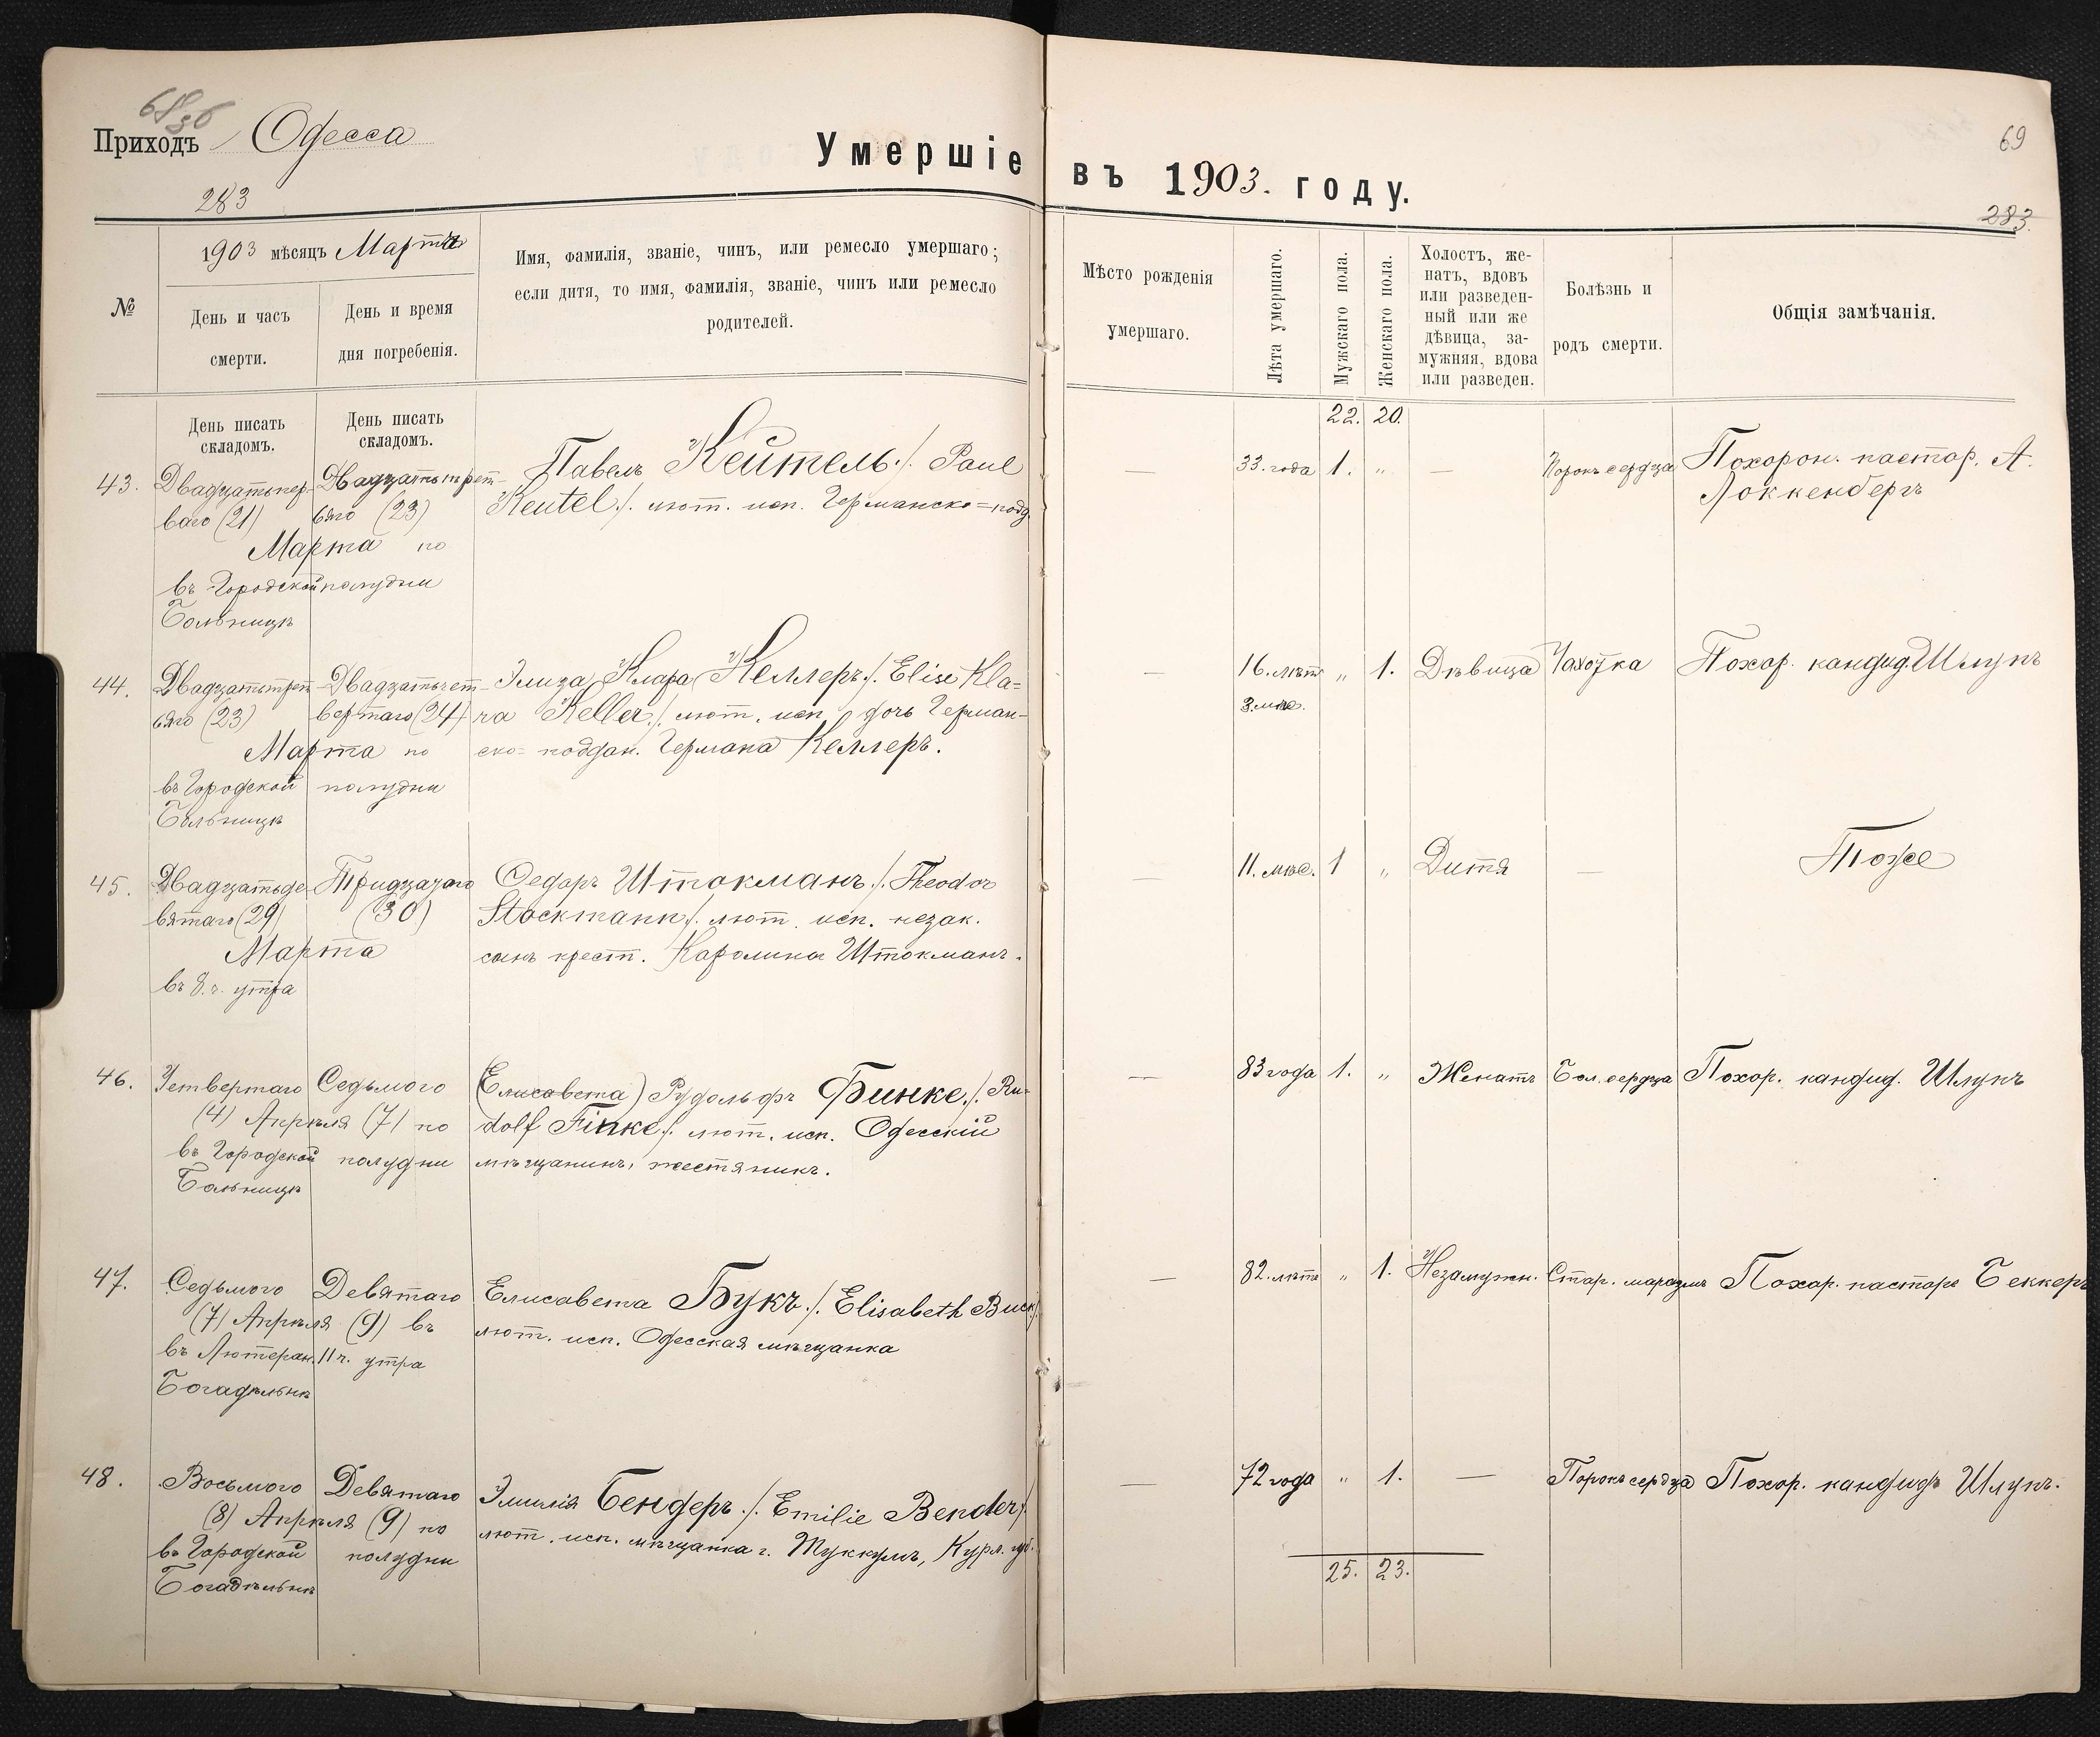 68 36
Приходъ Одесса
Умершіе въ 1903. году.
69
283
283.
№
1903 мѣсяцъ Марта
День и часъ смерти.
День и время дня погребенія.
Имя, фамилія, званіе, чинъ, или ремесло умершаго;
если дитя, то имя, фамилія, званіе, чинъ или ремесло
родителей.
Мѣсто рожденія
умершаго.
Лѣта умершаго.
Мужскаго пола.
Женскаго пола.
Холостъ, же-
натъ, вдовъ
или разведен-
ный или же
дѣвица, за-
мужняя, вдова
или разведен.
Болѣзнь и
родъ смерти.
Общія замѣчанія.
День писать
складомъ.
День писать
складомъ.
22. 20.
43.
Двадцатьпер-
ваго (21)
Двадцатьтрет-
ьяго (23)
Марта по
въ Городской полудни
Больницѣ
Павелъ Кейтель ./. Paul
Keutel ./. лют. исп. Германско=подд.
—
33. года
1.
„
—
Порокъ сердца
Похорон. пастор. А.
Локкенбергъ
44.
Двадцатьтрет-
ьяго (23)
Двадцатьчет-
вертаго (24)
Марта по
въ Городской полудни
Больницѣ
Элиза Клара Келлеръ ./. Elise Kla=
ra Keller ./. лют. исп дочь Герман-
ско= поддан. Германа Келлеръ.
—
16. лѣтъ
3. мѣс.
„
1.
Дѣвица
Чахотка
Похор. кандид. Шлупъ
45.
Двадцатьде
вятаго (29)
Тридцатаго
(30)
Марта
въ 8. ч. утра
Ѳедоръ Штокманъ ./. Theodor
Stockmann ./. лют. исп. незак.
сынъ крест. Каролина Штокманъ.
—
11. мѣс.
1
„
Дитя
—
Тоже
46.
Четвертаго Седьмого
(4) Апрѣля (7) по
въ Городской полудни
Больницѣ
(Елисавета) Рудольфъ Финке ./. Ru-
dolf Finke ./. лют. исп. Одесскій
мѣщанинъ, жестяникъ.
—
83 года
1.
„
Женатъ
Бол. сердца
Похор. кандид. Шлупъ
47.
Седьмого Девятаго
(7) Апрѣля (9) въ
въ Лютеран. 11 ч. утра
Богадѣльнѣ
Елисавета Букъ ./. Elisabeth Buck ./.
лют. исп. Одесская мѣщанка
—
82. лѣтъ
„
1.
Незамужн.
Стар. маразмъ
Похор. пасторъ Беккеръ
48.
Восьмого Девятаго
(8) Апрѣля (9) по
въ Городской полудни
Богадѣльнѣ
Эмилія Бендеръ ./. Emilie Bender ./.
лют. исп. мѣщанка г. Туккумъ, Курл. губ.
—
72 года
„
1.
—
Порокъ сердца
Похор. кандидъ Шлупъ.
25. 23.